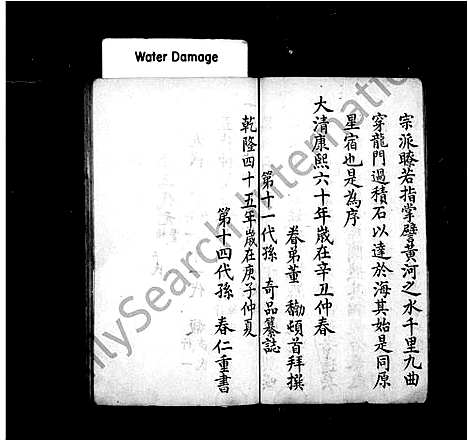 Water Damage
宗派瞭若指掌譬黃河之水千里九曲
穿龍門過積石以達於海其始是同原
星宿也是為序
大清康熙六十年歲在辛丑仲春
眷弟董 勷頓首拜撰
第十一代孫 奇品纂誌
乾隆四十五年歲在庚子仲夏
第十四代孫 春仁重書